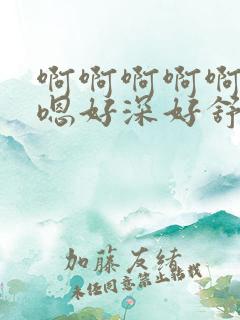 啊啊啊啊啊
嗯好深好舒
加藤友绪
未经同意禁止转载